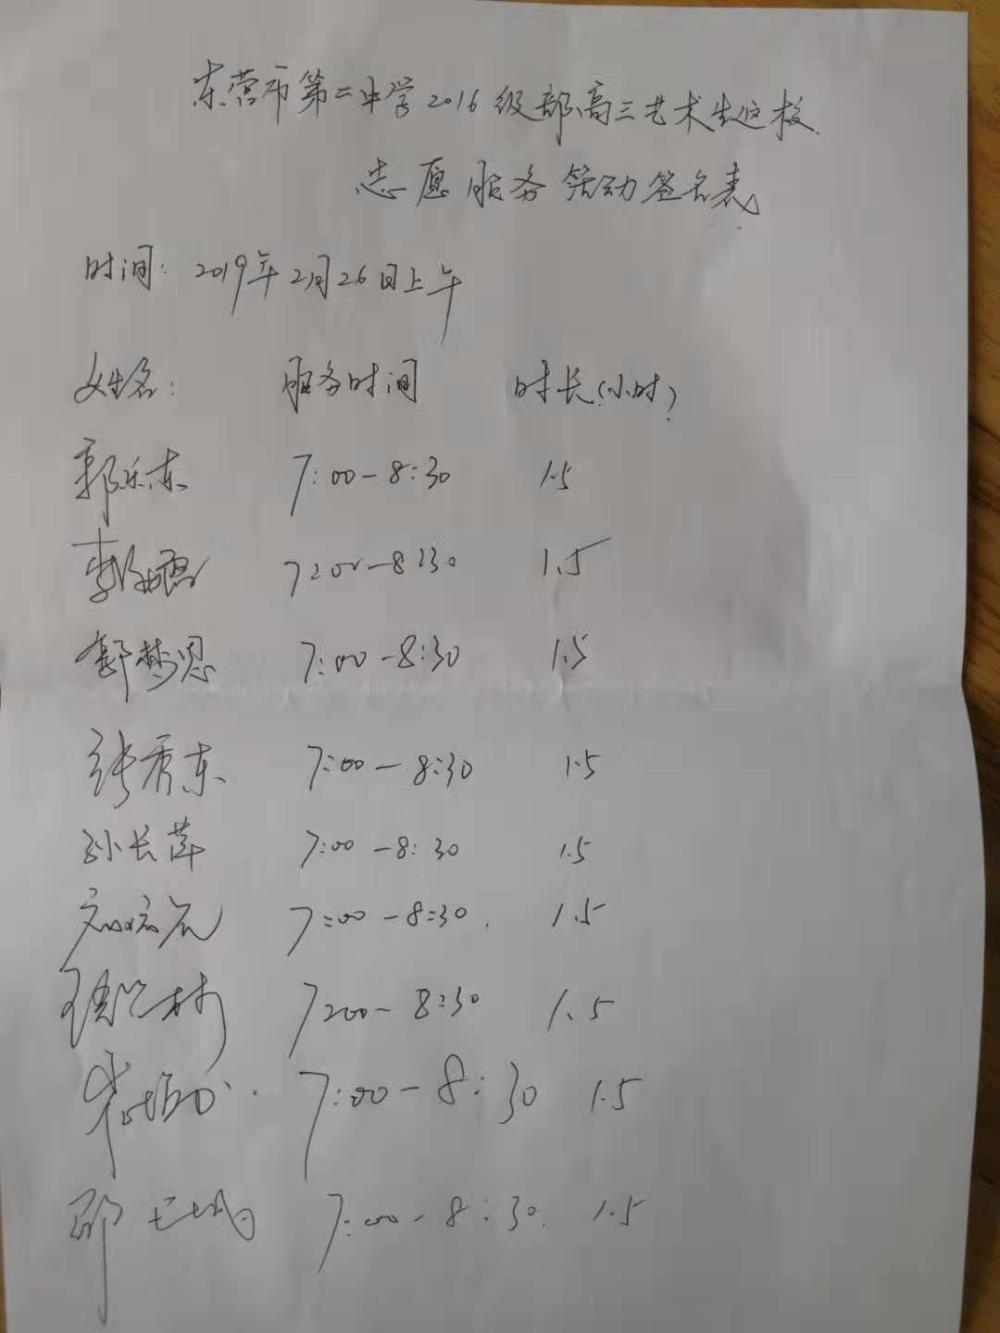 东营市第二中学2016级部高三艺术生返校
志愿服务活动签名表
时间：2019年2月26日上午
姓名： 服务时间 时长（小时）
郭乐东 7:00-8:30 1.5
李 7:00-8:30 1.5
郭梦思 7:00-8:30 1.5
张秀东 7:00-8:30 1.5
孙长萍 7:00-8:30 1.5
7:00-8:30. 1.5
林 7:00-8:30 1.5
7:00-8:30 1.5
邵 7:00-8:30. 1.5